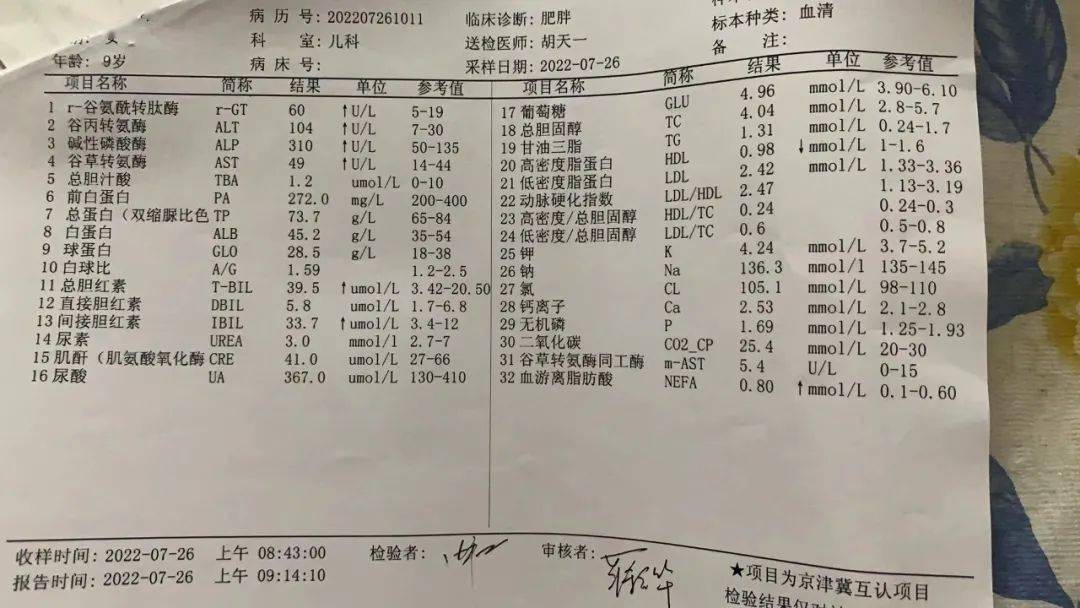 病历号: 202207261011 临床诊断: 肥胖 标本种类: 血清
科 室: 儿科 送检医师: 胡天一 备 注:
年龄: 9岁 病床号: 采样日期: 2022-07-26
项目名称 简称 结果 单位 参考值 项目名称 简称 结果 单位 参考值
1 r-谷氨酰转肽酶 r-GT 60 ↑U/L 5-19 17 葡萄糖 GLU 4.96 mmol/L 3.90-6.10
2 谷丙转氨酶 ALT 104 ↑U/L 7-30 18 总胆固醇 TC 4.04 mmol/L 2.8-5.7
3 碱性磷酸酶 ALP 310 ↑U/L 50-135 19 甘油三脂 TG 1.31 mmol/L 0.24-1.7
4 谷草转氨酶 AST 49 ↑U/L 14-44 20 高密度脂蛋白 HDL 0.98 ↓mmol/L 1-1.6
5 总胆汁酸 TBA 1.2 umol/L 0-10 21 低密度脂蛋白 LDL 2.42 mmol/L 1.33-3.36
6 前白蛋白 PA 272.0 mg/L 200-400 22 动脉硬化指数 LDL/HDL 2.47 1.13-3.19
7 总蛋白（双缩脲比色 TP 73.7 g/L 65-84 23 高密度/总胆固醇 HDL/TC 0.24 0.24-0.3
8 白蛋白 ALB 45.2 g/L 35-54 24 低密度/总胆固醇 LDL/TC 0.6 0.5-0.8
9 球蛋白 GLO 28.5 g/L 18-38 25 钾 K 4.24 mmol/L 3.7-5.2
10 白球比 A/G 1.59 1.2-2.5 26 钠 Na 136.3 mmol/l 135-145
11 总胆红素 T-BIL 39.5 ↑umol/L 3.42-20.50 27 氯 CL 105.1 mmol/L 98-110
12 直接胆红素 DBIL 5.8 umol/L 1.7-6.8 28 钙离子 Ca 2.53 mmol/L 2.1-2.8
13 间接胆红素 IBIL 33.7 ↑umol/L 3.4-12 29 无机磷 P 1.69 mmol/L 1.25-1.93
14 尿素 UREA 3.0 mmol/l 2.7-7 30 二氧化碳 CO2_CP 25.4 mmol/L 20-30
15 肌酐（肌氨酸氧化酶 CRE 41.0 umol/L 27-66 31 谷草转氨酶同工酶 m-AST 5.4 U/L 0-15
16 尿酸 UA 367.0 umol/L 130-410 32 血游离脂肪酸 NEFA 0.80 ↑mmol/L 0.1-0.60
收样时间: 2022-07-26 上午 08:43:00 检验者: 审核者:
报告时间: 2022-07-26 上午 09:14:10 ★项目为京津冀互认项目